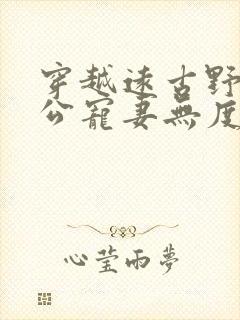 穿越遠古野
公寵妻無度
心瑩雨夢